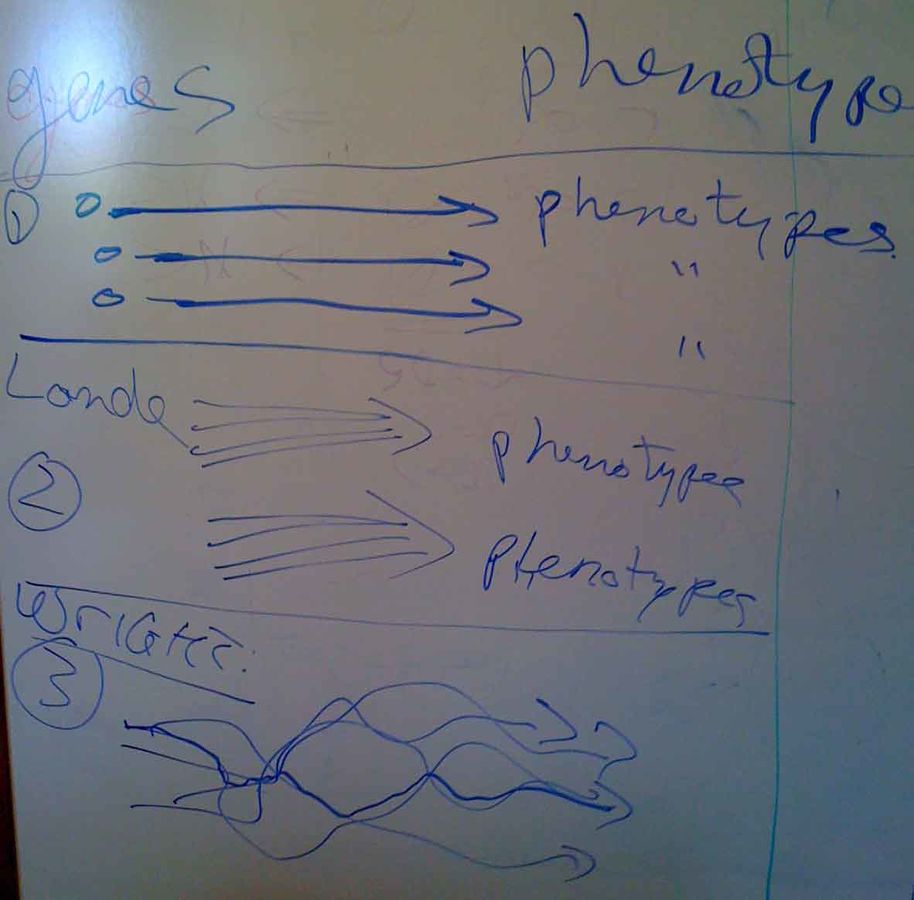 genes phenotype
1 phenotypes
"
"
Lande
phenotypes
2
Phenotypes
WRIGHT:
3